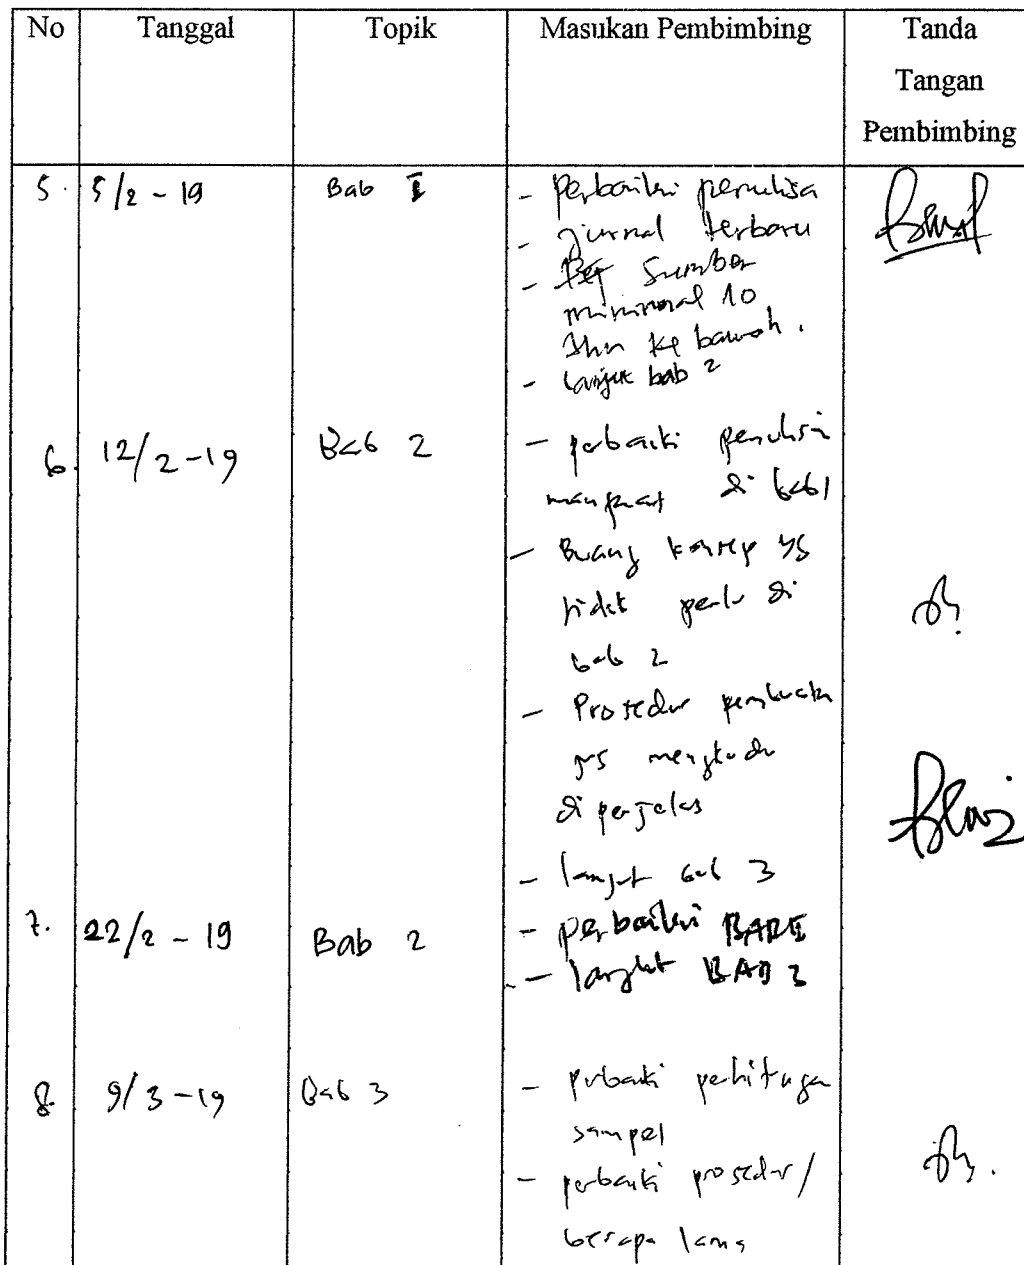 No Tanggal Topik Masukan Pembimbing Tanda
Tangan
Pembimbing
5. 5/2 - 19 Bab I - Perbaiki penulisa
- jurnal terbaru
- Sumber
minimal 10
thn ke bawah.
- lanjut bab 2
6. 12/2 - 19 Bab 2 - perbaiki penulisan
manfaat di bab 1
- Buang konsep yg
tidak perlu di
bab 2
- Prosedur pembuatan
jus mengkudu
diperjelas
- lanjut bab 3
7. 22/2 - 19 Bab 2 - perbaiki BAB II
- lanjut BAB 3
8. 9/3 - 19 Bab 3 - perbaiki perhitungan
sampel
- perbaiki prosedur/
berapa lama